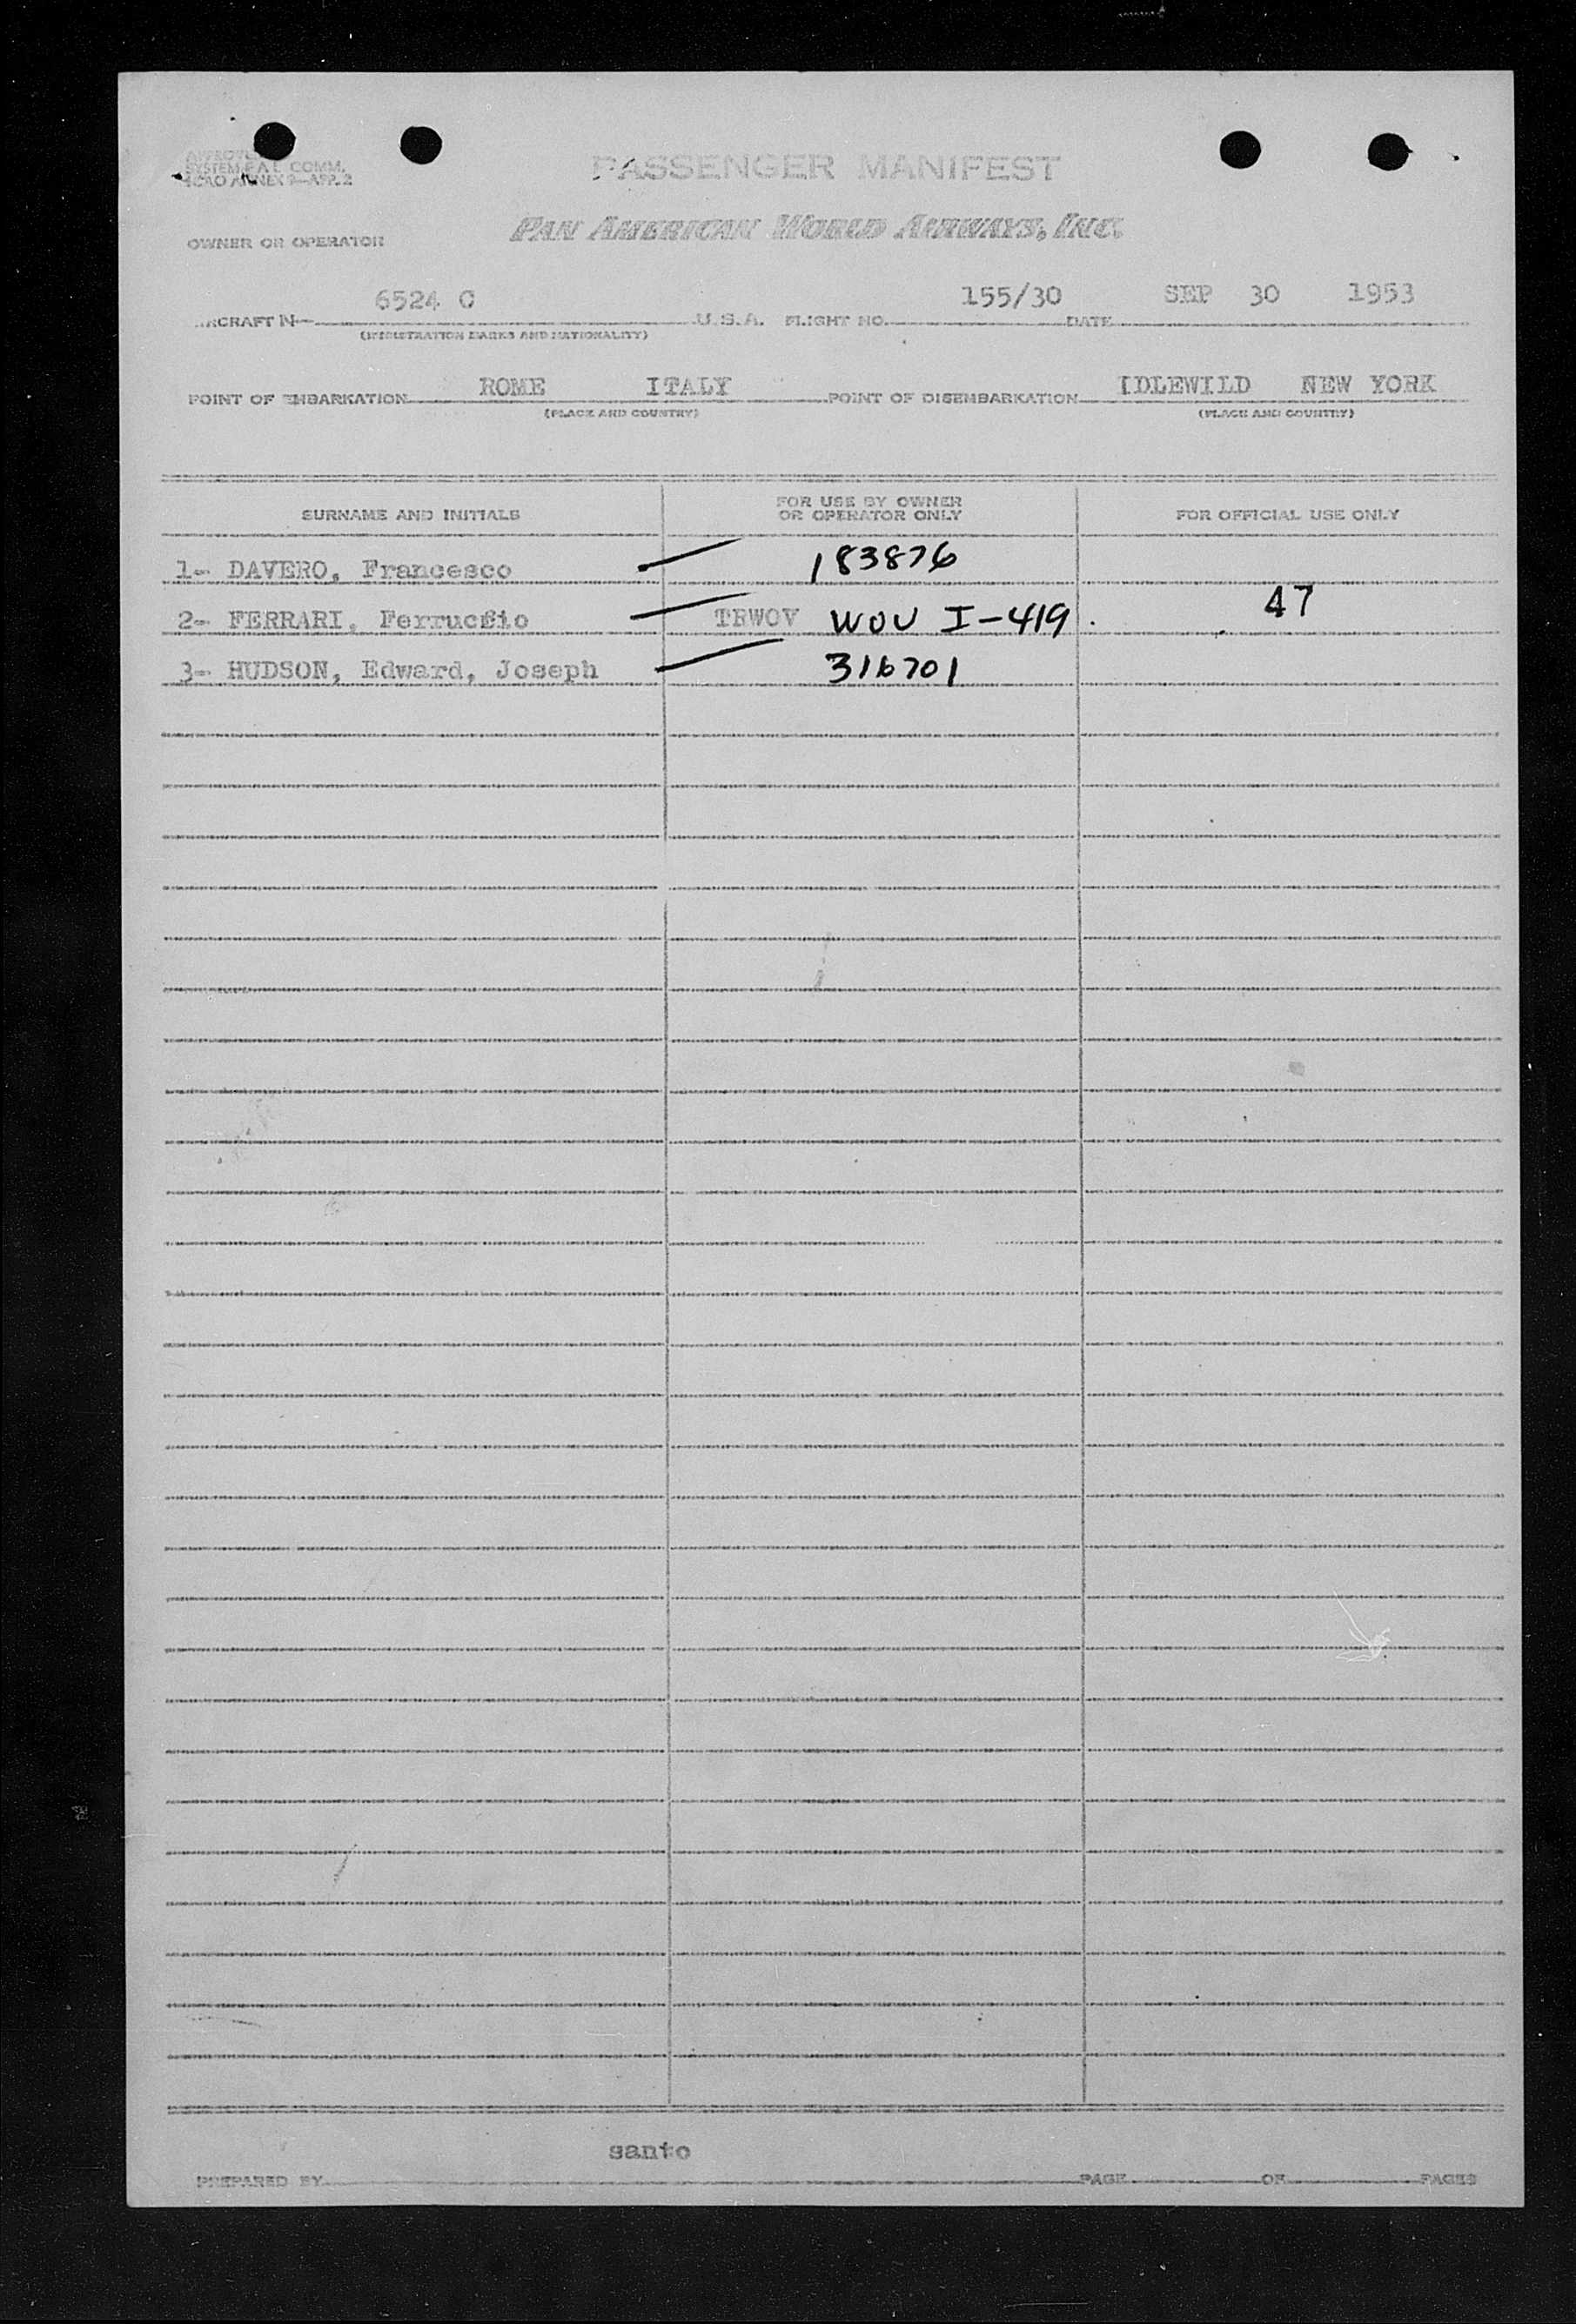 APPROVED
SYSTEM F.A.L. COMM.
ICAO ANNEX 9—APP. 2
PASSENGER MANIFEST
OWNER OR OPERATOR PAN AMERICAN WORLD AIRWAYS, INC.
AIRCRAFT N— 6524 C U.S.A. FLIGHT NO. 155/30 DATE SEP 30 1953
(REGISTRATION MARKS AND NATIONALITY)
POINT OF EMBARKATION ROME ITALY POINT OF DISEMBARKATION IDLEWILD NEW YORK
(PLACE AND COUNTRY) (PLACE AND COUNTRY)
SURNAME AND INITIALS FOR USE BY OWNER OR OPERATOR ONLY FOR OFFICIAL USE ONLY
1- DAVERO, Francesco 183876
2- FERRARI, Ferruccio TRWOV WOV I-419 47
3- HUDSON, Edward, Joseph 316701
santo
PREPARED BY PAGE OF PAGES